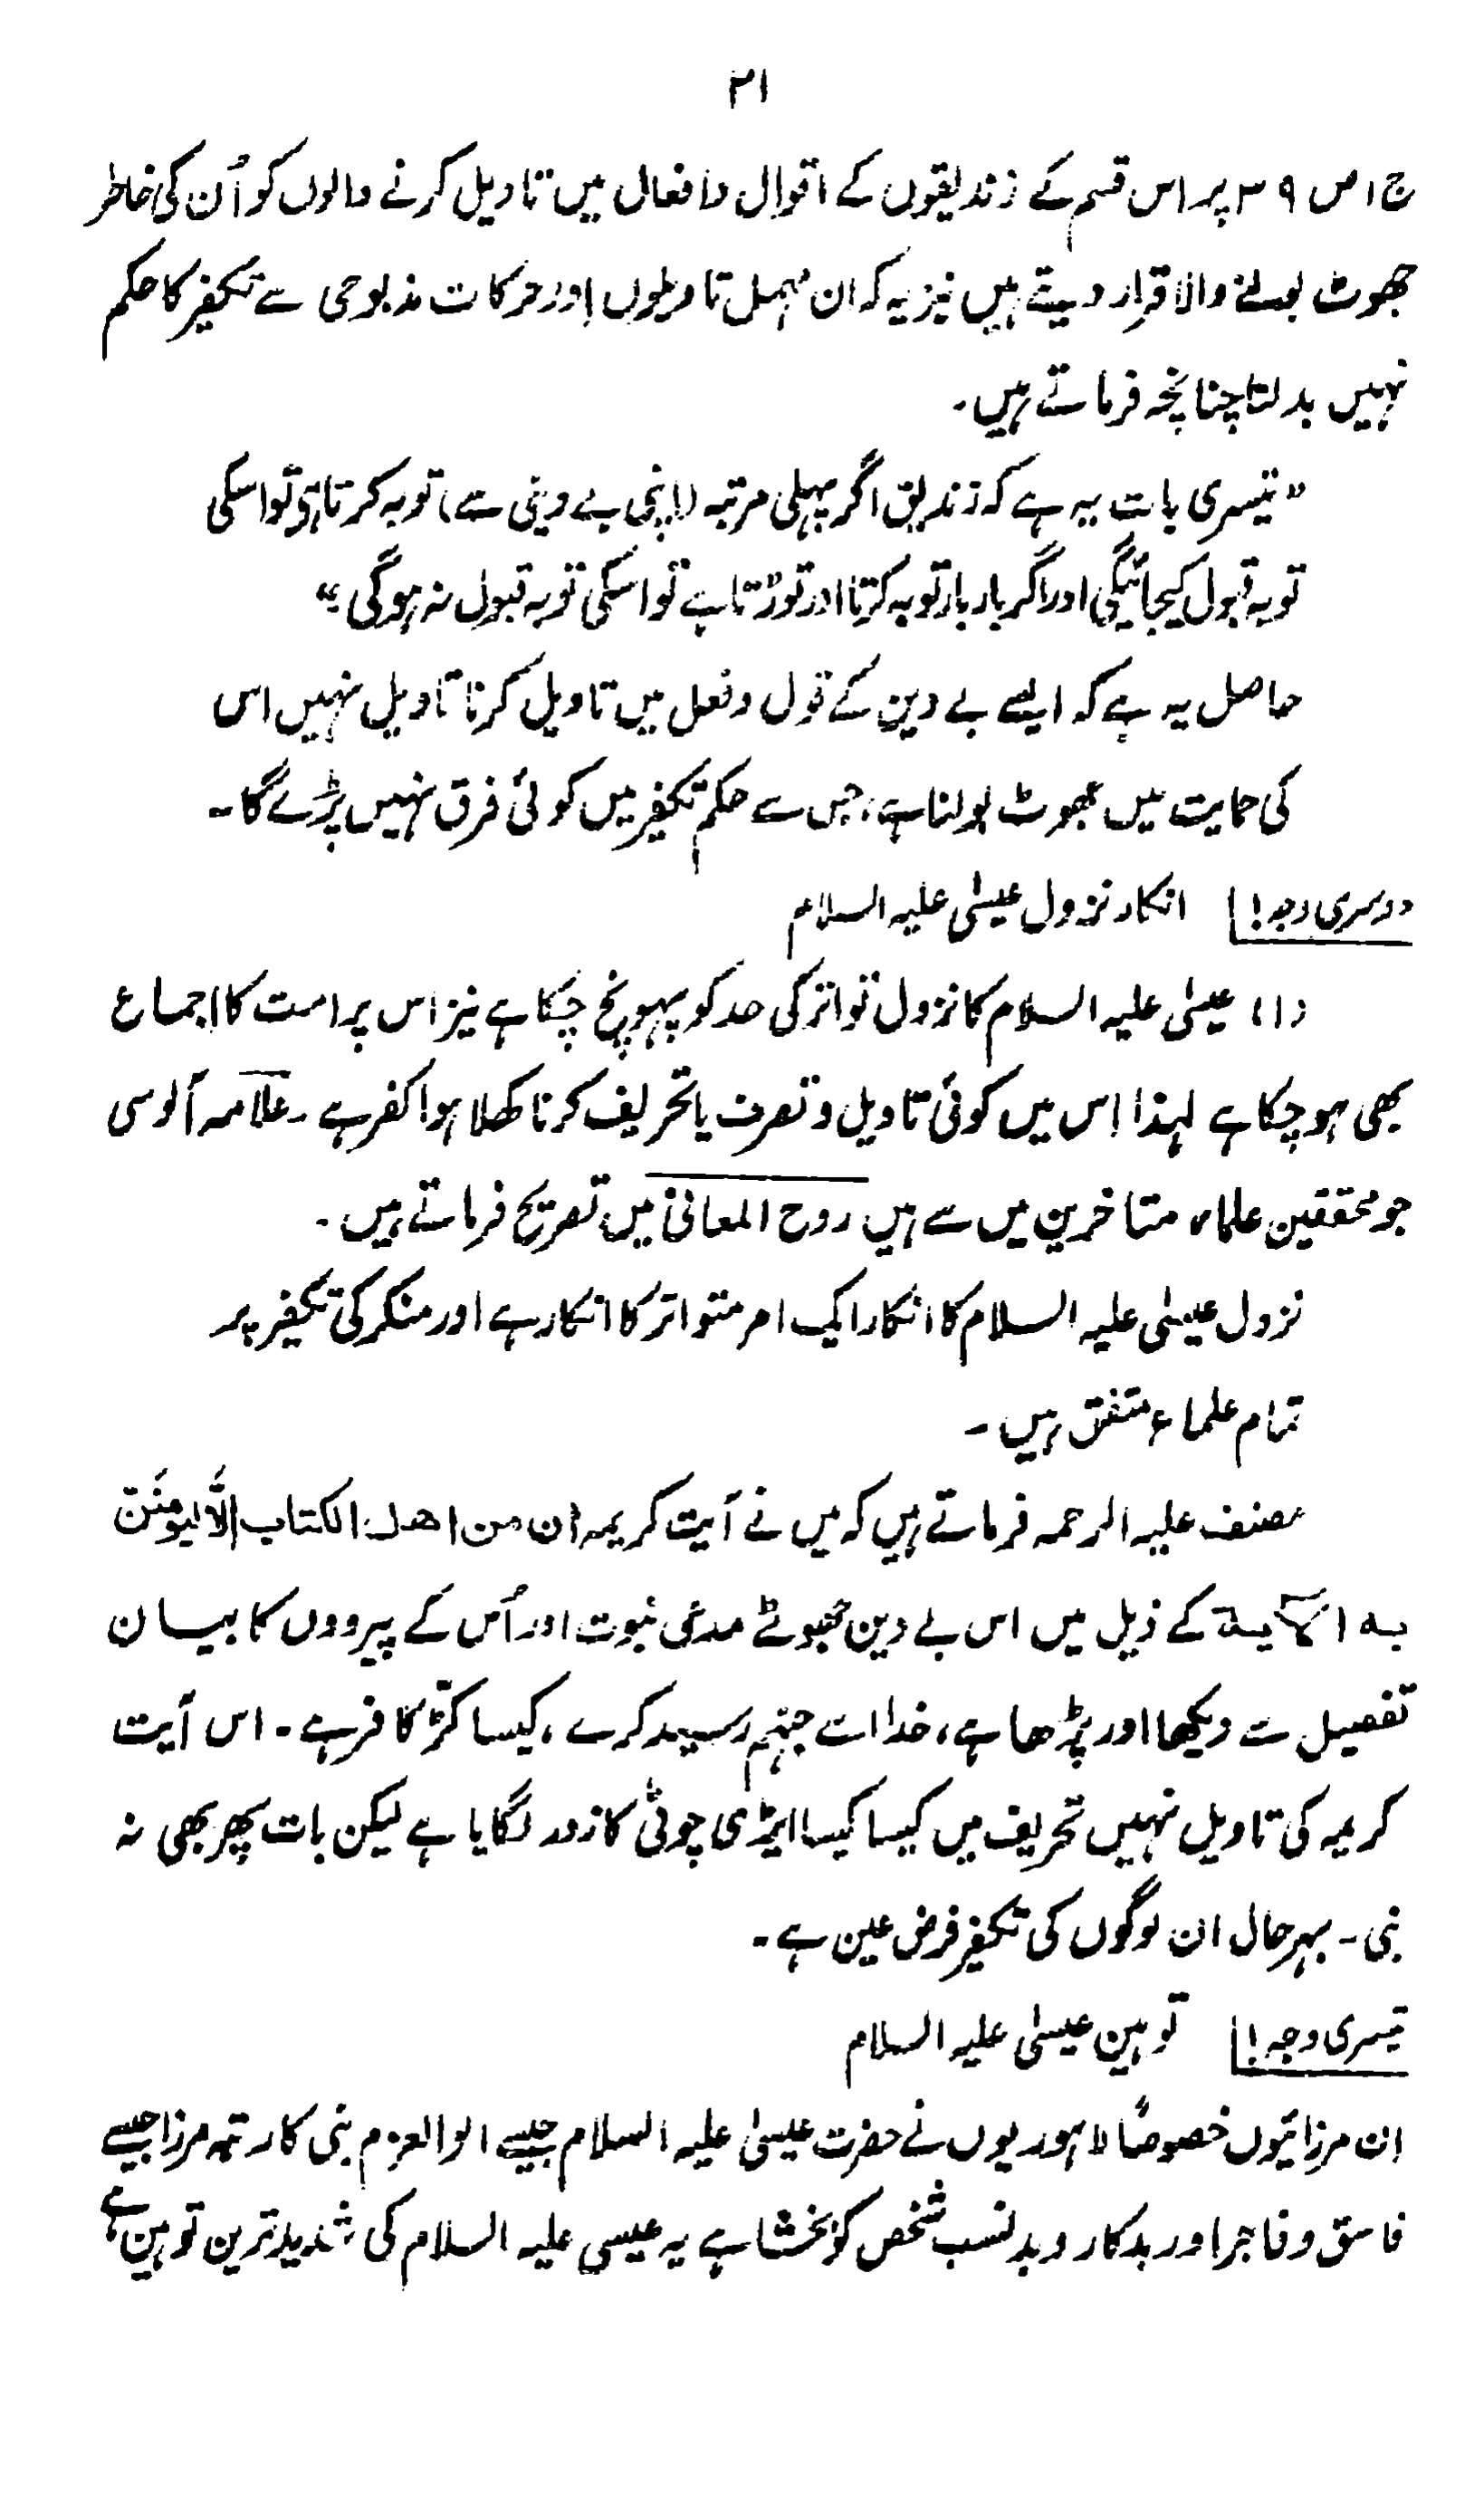 ۲۱
ج ا ص ۳۹ پر اس قسم کے زندیقوں کے اقوال و افعال میں تاویل کرنے والوں کو اُن کی خاطر
جھوٹ بولنے والا قرار دیتے ہیں نیز یہ کہ ان مہمل تاویلوں اور حرکات مذبوحی سے تکفیر کا حکم
نہیں بدلتا چنانچہ فرماتے ہیں۔
”تیسری بات یہ ہے کہ زندیق اگر پہلی مرتبہ (اپنی بے دینی سے) توبہ کرتا ہی تو اسکی
توبہ قبول کیجائیگی اور اگر بار بار توبہ کرتا اور توڑتا ہے تو اسکی توبہ قبول نہ ہوگی“
حاصل یہ ہے کہ ایسے بے دین کے قول و فعل میں تاویل کرنا تاویل نہیں اس
کی حمایت میں جھوٹ بولنا ہے، جس سے حکم تکفیر میں کوئی فرق نہیں پڑے گا۔
دوسری وجہ! انکار نزول عیسیٰ علیہ السلام
(۱) عیسیٰ علیہ السلام کا نزول تواتر کی حد کو پہونچ چکا ہے نیز اس پر امت کا اجماع
بھی ہو چکا ہے لہذا اس میں کوئی تاویل و تصرف یا تحریف کرنا کھلا ہوا کفر ہے۔ علامہ آلوسی
جو محققین علماء متاخرین میں سے ہیں روح المعانی میں تصریح فرماتے ہیں۔
نزول عیسیٰ علیہ السلام کا انکار ایک امر متواتر کا انکار ہے اور منکر کی تکفیر پر
تمام علماء متفق ہیں۔
مصنف علیہ الرحمہ فرماتے ہیں کہ میں نے آیت کریمہ ان من اھل الکتاب اِلَّا لیومِنَنَّ
بہ الآیۃ کے ذیل میں اس بے دین جھوٹے مدعی نبوت اور اُس کے پیرووں کا بیان
تفصیل سے دیکھا اور پڑھا ہے، خدا اسے جہنّم رسید کرے، کیسا کٹّر کافر ہے۔ اس آیت
کریمہ کی تاویل نہیں تحریف میں کیسا کیسا ایڑی چوٹی کا زور لگایا ہے لیکن بات پھر بھی نہ
بنی۔ بہرحال ان لوگوں کی تکفیر فرض عین ہے۔
تیسری وجہ! توہین عیسیٰ علیہ السلام
ان مرزائیوں خصوصاً لاہوریوں نے حضرت عیسیٰ علیہ السلام جیسے الوالعزم نبی کا رتبہ مرزا جیسے
فاسق و فاجر اور بدکار و بد نسب شخص کو بخشا ہے یہ عیسی علیہ السلام کی شدید ترین توہین ہے